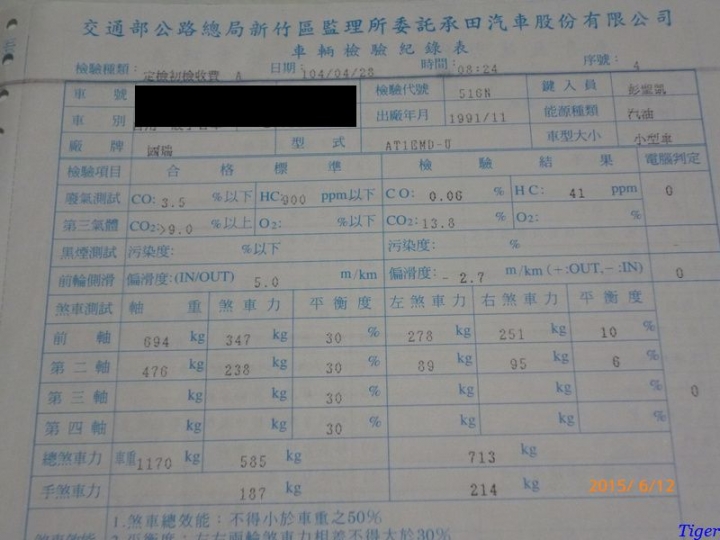 交通部公路總局新竹區監理所委託承田汽車股份有限公司
車輛檢驗紀錄表
檢驗種類: 定檢初檢收費 A 日期: 104/04/28 時間: 08:24 序號: 4
車號 檢驗代號 516N 鍵入員
車別 出廠年月 1991/11 能源種類 汽油
廠牌 國瑞 型式 AT16MD-U 車型大小 小型車
檢驗項目 合格標準 檢驗結果 電腦判定
廢氣測試 CO: 3.5 %以下 HC: 900 ppm以下 CO: 0.06 % HC: 41 ppm 0
第三氣體 CO2: >9.0 %以上 O2: %以下 CO2: 13.8 % O2: %
黑煙測試 污染度: %以下 污染度: %
前輪側滑 偏滑度:(IN/OUT) 5.0 m/km 偏滑度: - 2.7 m/km (+:OUT,-:IN) 0
煞車測試 軸重 煞車力 平衡度 左煞車力 右煞車力 平衡度
前軸 694 kg 347 kg 30 % 278 kg 251 kg 10 %
第二軸 476 kg 238 kg 30 % 89 kg 95 kg 6 %
第三軸 kg kg 30 % kg kg % 0
第四軸 kg kg 30 % kg kg %
總煞車力 車重 1170 kg 585 kg 713 kg
手煞車力 187 kg 214 kg
2015/ 6/12
1.煞車總效能:不得小於車重之50%
煞車效能 2.平衡度:左右兩輪煞車力相差不得大於30%
Tiger